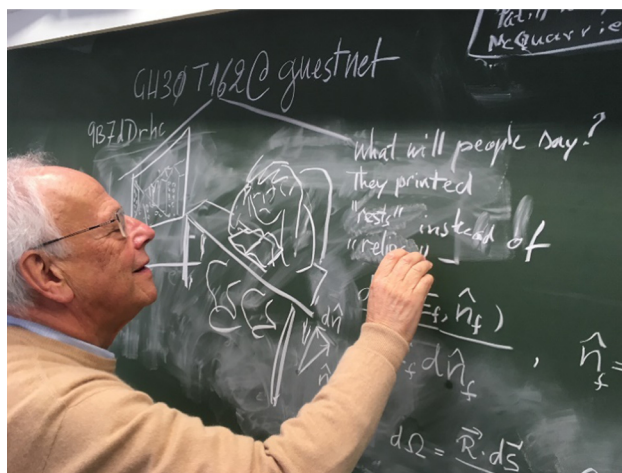 McQuarrie
GH30T162@guestnet
9B7dDrhc
What will people say?
They printed
"rests" instead of
"relics"
n̂_f)
d n̂_f , n̂_f =
dn̂
dΩ = R⃗·ds⃗